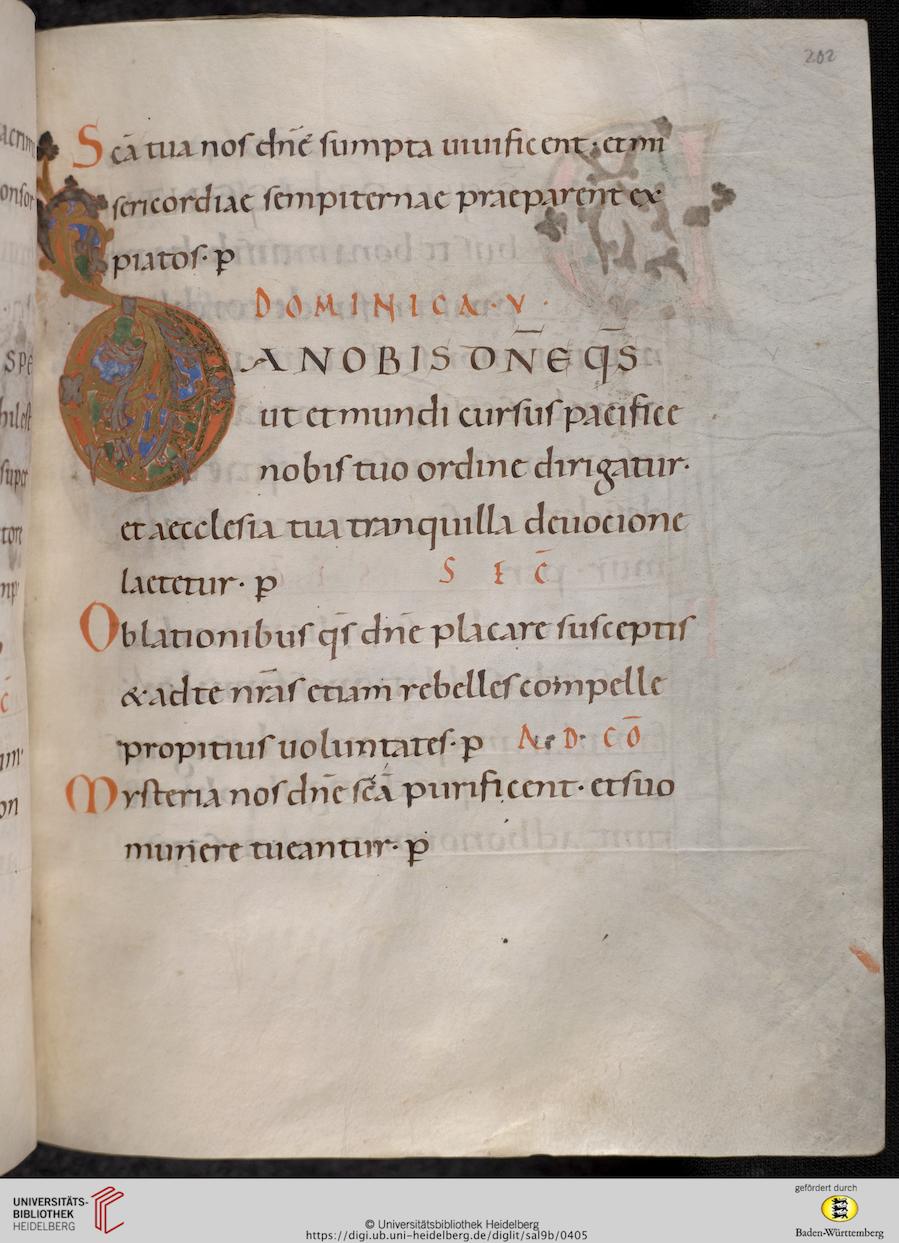 202
Scā tua nos dn̄e sumpta uiuificent· et mi
sericordiae sempiternae praeparent ex
piatos· p̄
DOMINICA · V ·
DA NOBIS DN̄E QS̄
ut et mundi cursus pacifice
nobis tuo ordine dirigatur·
et aecclesia tua tranquilla deuocione
laetetur· p̄ SEC̄
Oblationibus qs̄ dn̄e placare susceptis
& ad te nr̄as etiam rebelles compelle
propitius uoluntates· p̄ AD CŌ
Mysteria nos dn̄e scā purificent· et suo
munere tueantur· p̄
UNIVERSITÄTS-
BIBLIOTHEK
HEIDELBERG
© Universitätsbibliothek Heidelberg
https://digi.ub.uni-heidelberg.de/diglit/sal9b/0405
gefördert durch
Baden-Württemberg